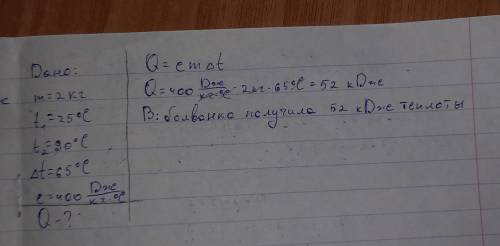 Дано:
m=2кг
t₁=25°C
t₂=90°C
Δt=65°C
c=400 Дж/кг·°C
Q-?
Q=cmΔt
Q=400 Дж/кг·°C·2кг·65°C=52 кДж
В: болванка получила 52 кДж теплоты